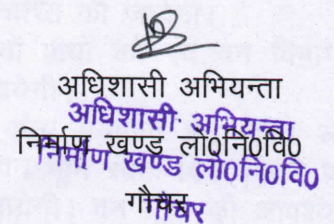 अधिशासी अभियन्ता
अधिशासी अभियन्ता
निर्माण खण्ड लो0नि0वि0
निर्माण खण्ड लो0नि0वि0
गौचर
गौचर